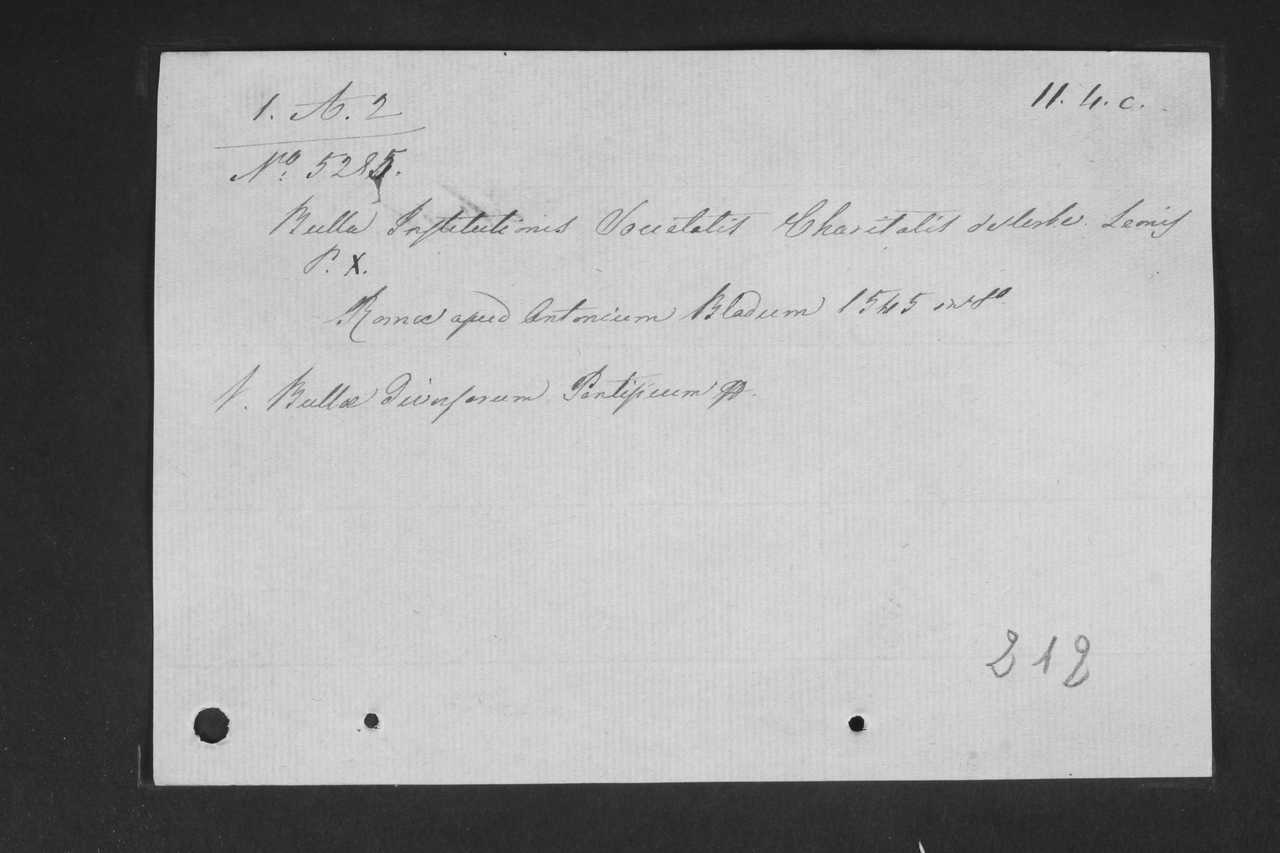 1. A. 2
11. 4. c.
No. 5285.
Bulla Institutionis Societatis Charitatis de Urbe. Leonis
P. X.
Romæ apud Antonium Bladum 1545 in 8o
V. Bullæ Diversorum Pontificum
212